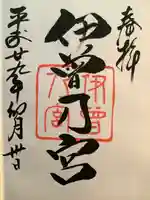 奉拝
伊曽乃宮
伊曽
乃宮
平成廿九年四月卅日